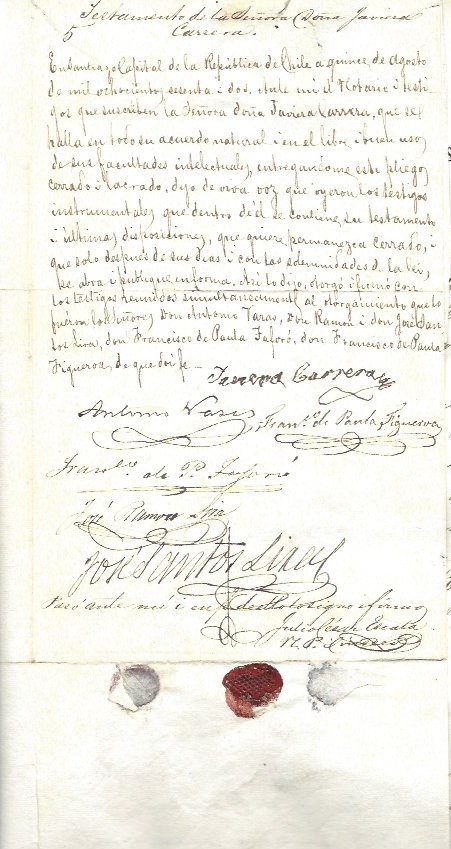 Testamento de la Señora Doña Javiera
5 Carrera.
En Santiago Capital de la República de Chile a quince de Agosto
de mil ochocientos sesenta i dos. Ante mi el Notario i testi
gos que suscriben la Señora doña Javiera Carrera, que se
halla en todo su acuerdo natural i en el libre i buen uso
de sus facultades intelectuales, entregandome este pliego
cerrado i lacrado, dijo de viva voz que oyeron los testigos
instrumentales que dentro de él se contiene su testamento
i últimas disposiciones, que quiere permanezca cerrado, i
que solo despues de sus dias i con las solemnidades de la lei,
se abra i publique en forma. Así lo dijo, otorgó i firmó con
los testigos reunidos simultaneamente al otorgamiento que lo
fueron los Señores Don Antonio Varas, Don Ramon i don José San
tos Lira, don Francisco de Paula Taforó, don Francisco de Paula
Figueroa, de que doi fe
Javiera Carrera
Antonio Varas Fran.co de Paula Figueroa
Fran.co de P. Taforó
José Ramon Lira
José Santos Lira
Pasó ante mi i en fe de ello lo signo i firmo
Julio César Escala
N. P.